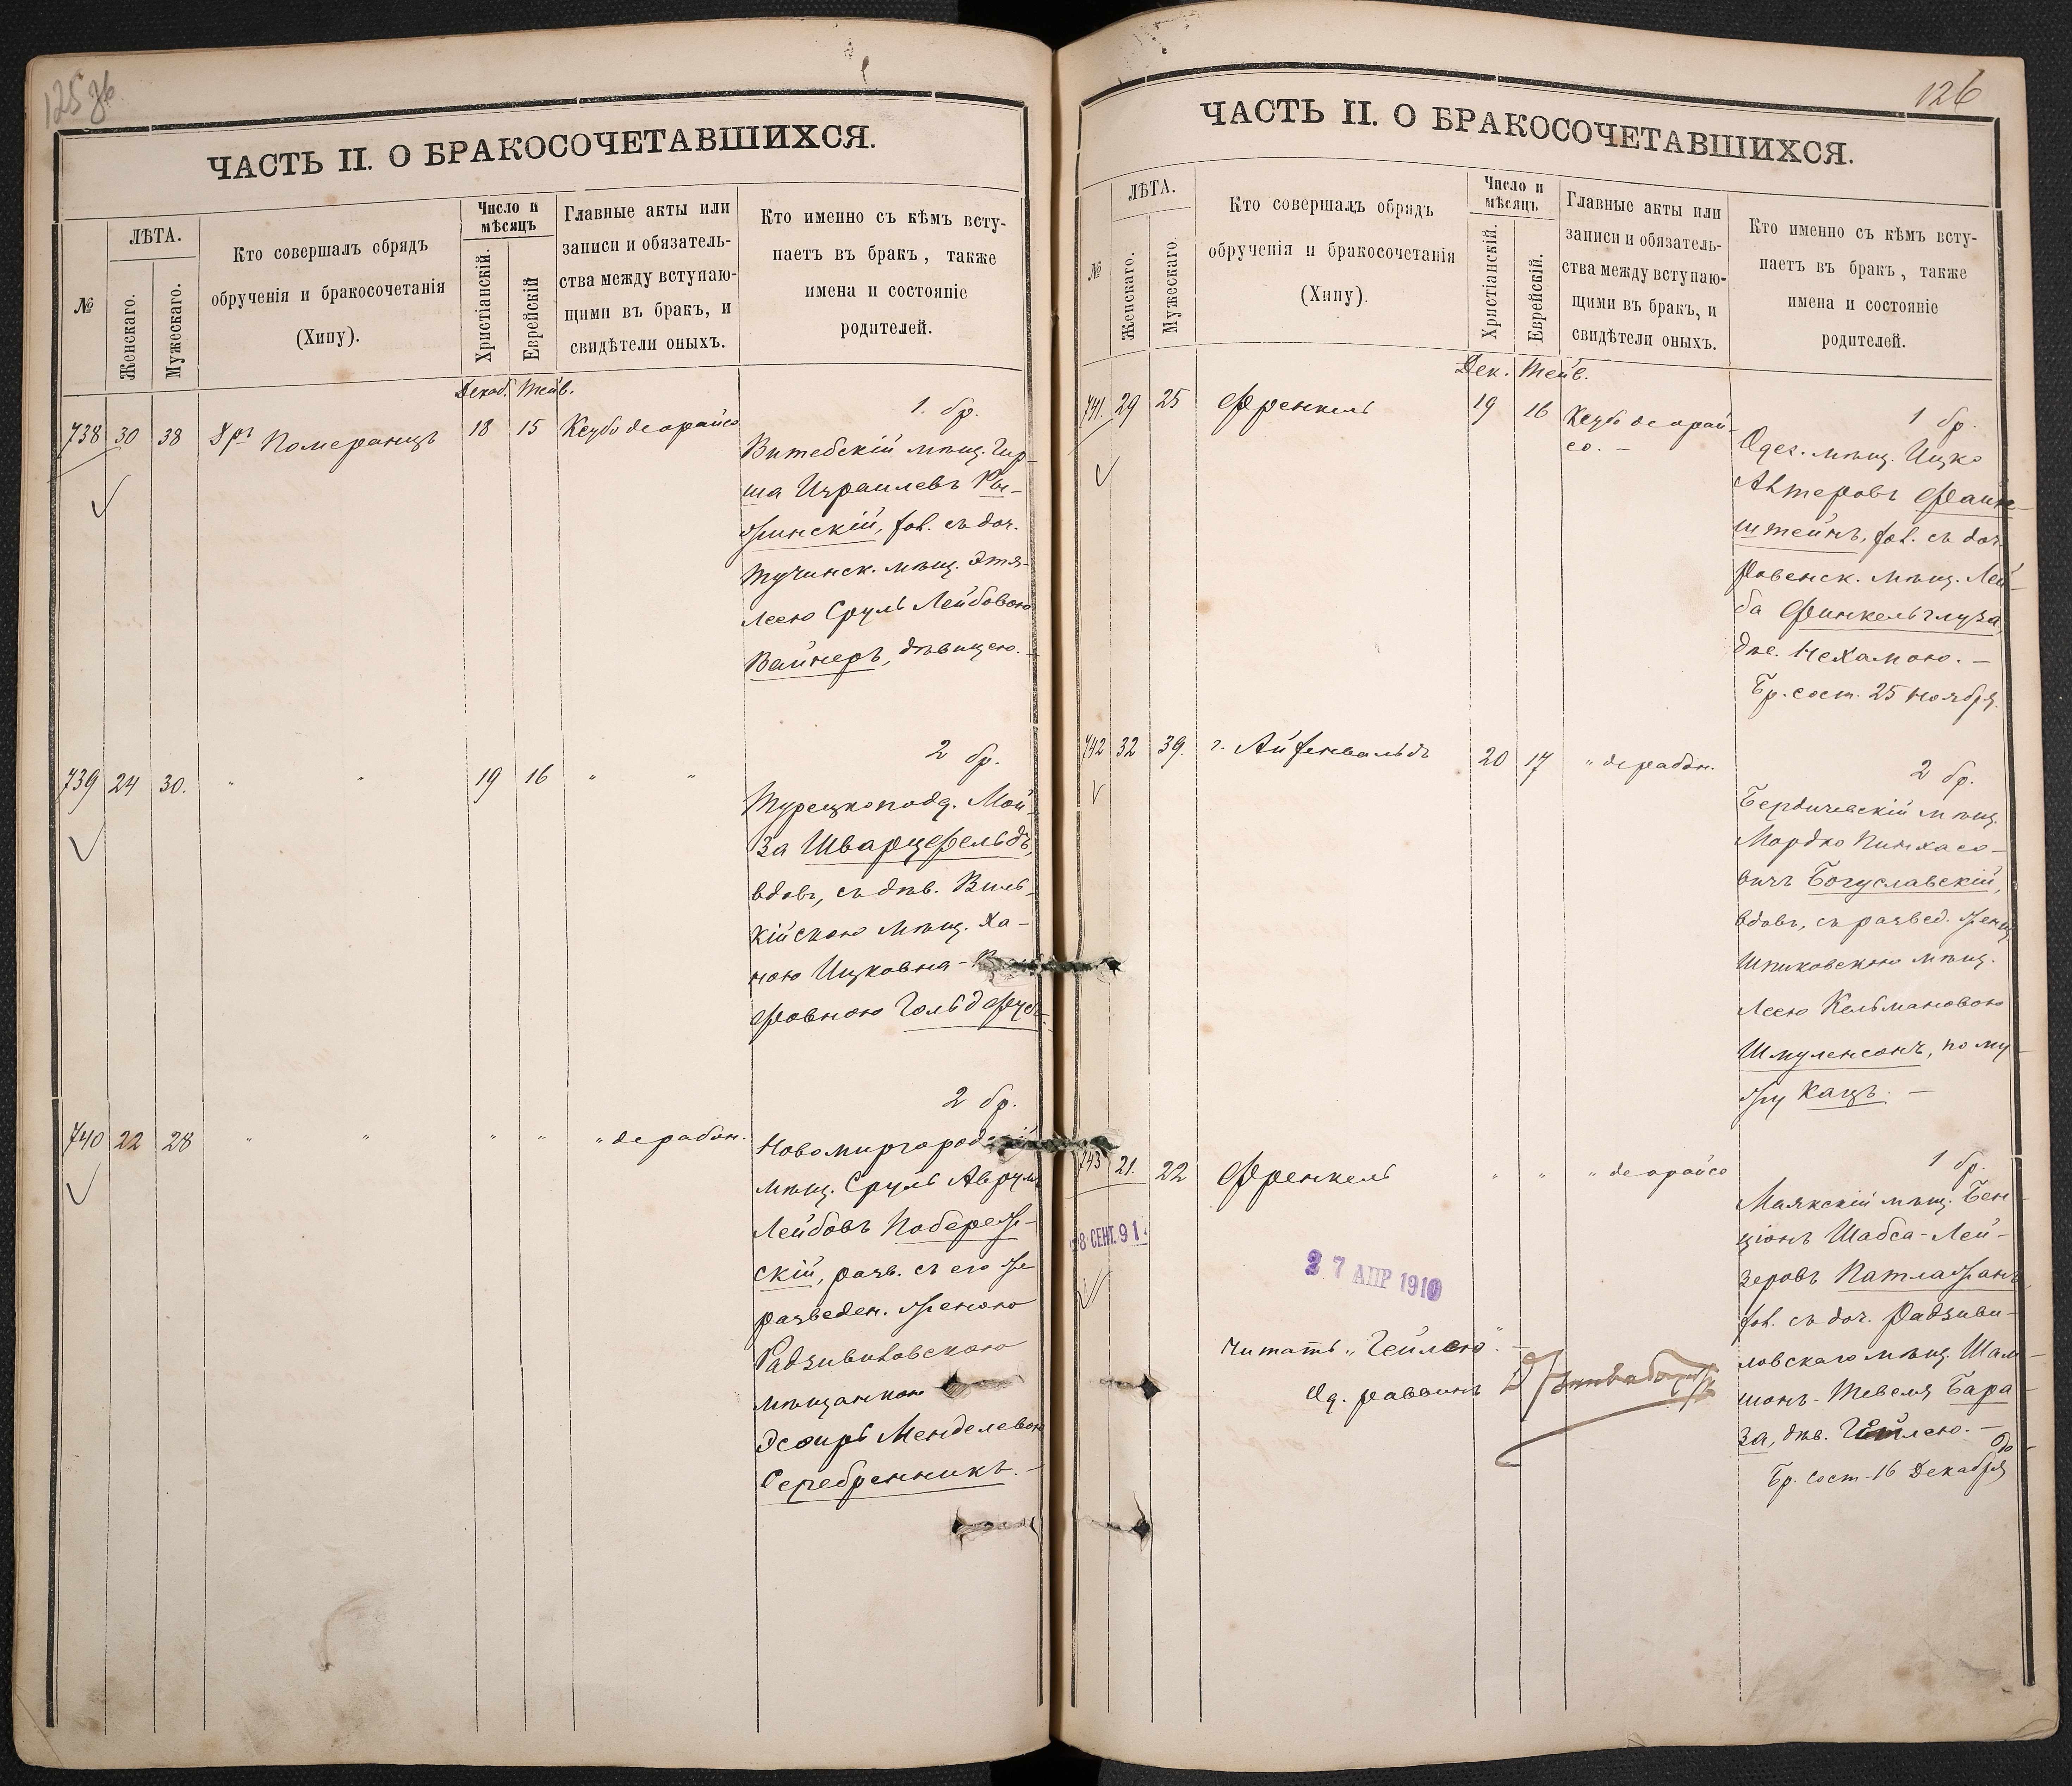 125 об
ЧАСТЬ II. О БРАКОСОЧЕТАВШИХСЯ.
№
ЛѢТА.
Женскаго.
Мужескаго.
Кто совершалъ обрядъ
обрученія и бракосочетанія
(Хипу).
Число и
мѣсяцъ
Христіанскій.
Еврейскій
Главные акты или
записи и обязатель-
ства между вступаю-
щими въ бракъ, и
свидѣтели оныхъ.
Кто именно съ кѣмъ всту-
паетъ въ бракъ, также
имена и состояніе
родителей.
Декаб. Тейв.
738 30 38 Др. Померанцъ 18 15 Кецубо деорайсо
1. бр.
Витебскій мѣщ. Гир-
ша Израилевъ Ры-
жинскій, хол. съ доч.
Тучинск. мѣщ. Этя-
Леею Сруль Лейбовою
Вайнеръ, дѣвицею.-
739 24 30. " " 19 16 " "
2 бр.
Турецкоподд. Мой-
за Шварцфельдъ,
вдов., съ дѣв. Виль-
кійскою мѣщ. Ха-
ною Ицковна-
фовною Гольдфубъ.
740 22 28 " " " " " дерабон.
2 бр.
Новомиргород
мѣщ. Сруль Аврумъ
Лейбовъ Побереж-
скій, разв. съ его же
разведен. женою
Радзивиловскою
мѣщанкою
Эсфирь Менделевою
Серебренникъ.-
126
ЧАСТЬ II. О БРАКОСОЧЕТАВШИХСЯ.
№
ЛѢТА.
Женскаго.
Мужескаго.
Кто совершалъ обрядъ
обрученія и бракосочетанія
(Хипу).
Число и
мѣсяцъ
Христіанскій.
Еврейскій.
Главные акты или
записи и обязатель-
ства между вступаю-
щими въ бракъ, и
свидѣтели оныхъ.
Кто именно съ кѣмъ всту-
паетъ въ бракъ, также
имена и состояніе
родителей.
Дек. Тейв.
741. 29 25 Френкель 19 16 Кецубо деорай-
со.-
1 бр.
Одес. мѣщ. Ицко
Алтеровъ Файн-
штейнъ, хол. съ доч.
Ровенск. мѣщ. Лей-
ба Финкельглуза,
дѣв. Нехамою.-
Бр. сост. 25 ноября.
742 32 39. г. Айзенвальдъ 20 17 " дераббн.
2 бр.
Бердичевскій мѣщ.
Мордко Пинхасо-
вичъ Богуславскій,
вдов., съ развед. женщ.
Шпиковскою мѣщ.
Леею Кельмановою
Шмуленсонъ, по му-
жу Кацъ.-
743 21. 22 Френкель " " " деорайсо
8 СЕНТ. 91.
27 АПР 1910
Читать "Гейлею".-
Од. раввинъ
1 бр.
Маякскій мѣщ. Бен-
ціонъ Шабса-Лей-
зеровъ Патлажанъ,
хол. съ доч. Радзиви-
ловскаго мѣщ. Шам-
шонъ-Тевеля Бара-
за, дѣв. Гейлею.-
Бр. сост. 16 Декабря